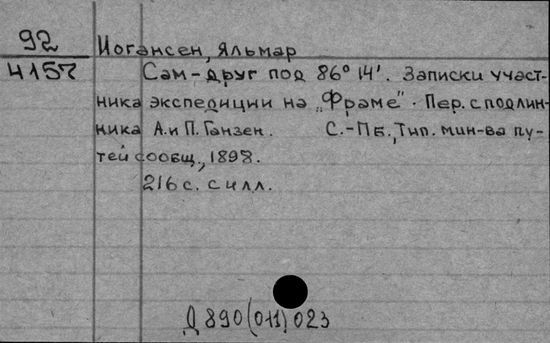 92 Иогансен, Яльмар
4157 Сам-друг под 86° 14'. Записки участ-
ника экспедиции на „Фраме". Пер. с подлин-
ника А. и П. Ганзен. С.-Пб., Тип. мин-ва пу-
тей сообщ., 1898.
216 с. с илл.
Д 890(011) 023